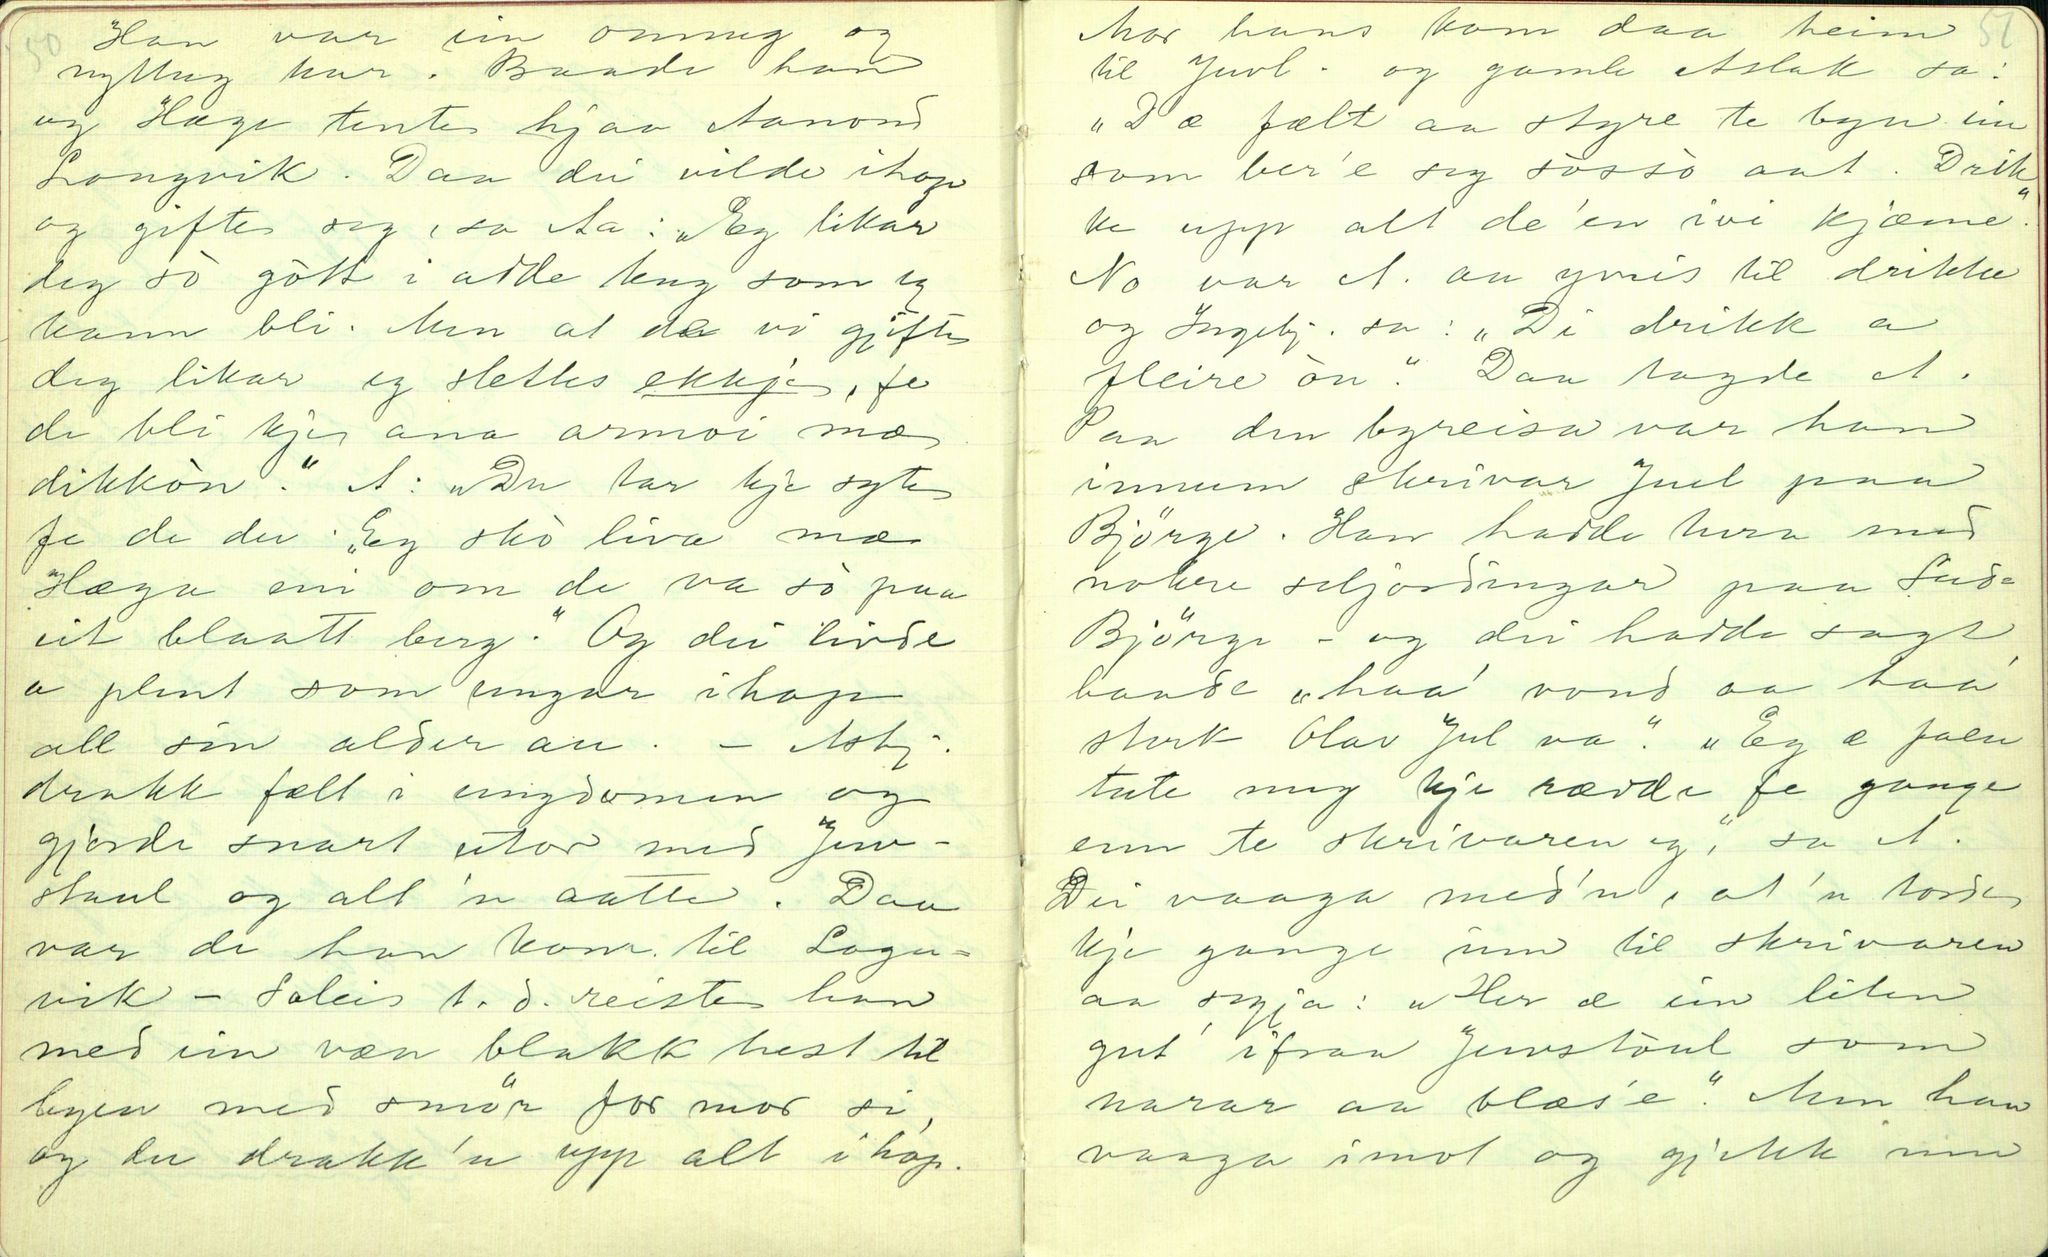 50
Han var ein onnug og
nyttug kar. Baade han
og Hæge tente hjaa Aanond
Longvik. Daa dei vilde ihop
og gifte seg, sa Aa: „Eg likar
deg sò gòtt i adde ting som eg
kann bli. Men at de vi gjifte
deg likar eg slettes ekkje, fe
de bli kje ana armoi mæ
dikkòn." A: „Du tar kje syte
fe de du. „Eg skò liva mæ
Hæga mi om de va sò paa
eit blaatt berg." Og dei livde
a plent som ungar ihop
all sin alder au. – Asbj.
drakk fælt i ungdomen og
gjorde snart utor med Juv-
staul og alt 'n aatte. Daa
var de han kom til Laga-
vik – Soleis t. d. reiste han
med ein væn blakk hest til
byen med smör for mor si,
og der drakk 'n upp alt ihop.
51
Mor hans kom daa heim
til Juvl. og gamle Aslak sa:
„D æ fælt aa styre te byn ein
som ber'e seg sòssò aat. Drik
ke upp alt de 'en ivi kjæme".
No var A. au yvris til drikke
og Ingebj. sa: „Di drikk a
fleire òn." Daa tagde A.
Paa den byreisa var han
innum skrivar Juel paa
Björge. Han hadde vera med
nokre seljordingar paa Sud-
Björge – og dei hadde sagt,
baade „haa' vond aa haa'
sterk Olav Jul va". „Eg æ faen
tute meg kje rædde fe gange
enn te skrivaren eg," sa A.
Dei vaaga med 'n, at 'n torde
kje gange inn til skrivaren
aa segja: „Her æ ein liten
gut ifraa Juvstòul som
narar aa blæs'e". Men han
vaaga imot og gjekk inn